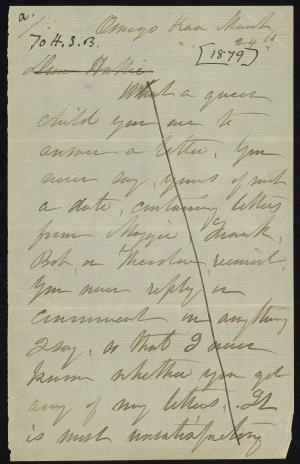 a.
Omego Kan March
24th
To H. S. B. [1879]
Dear Hattie
What a queer
child you are to
answer a letter. You
never say, yours of such
a date, containing letters
from Maggie, Frank,
Bob, or Theodore, received.
You never reply or
comment on anything
I say, so that I never
know whether you get
any of my letters. It
is most unsatisfactory